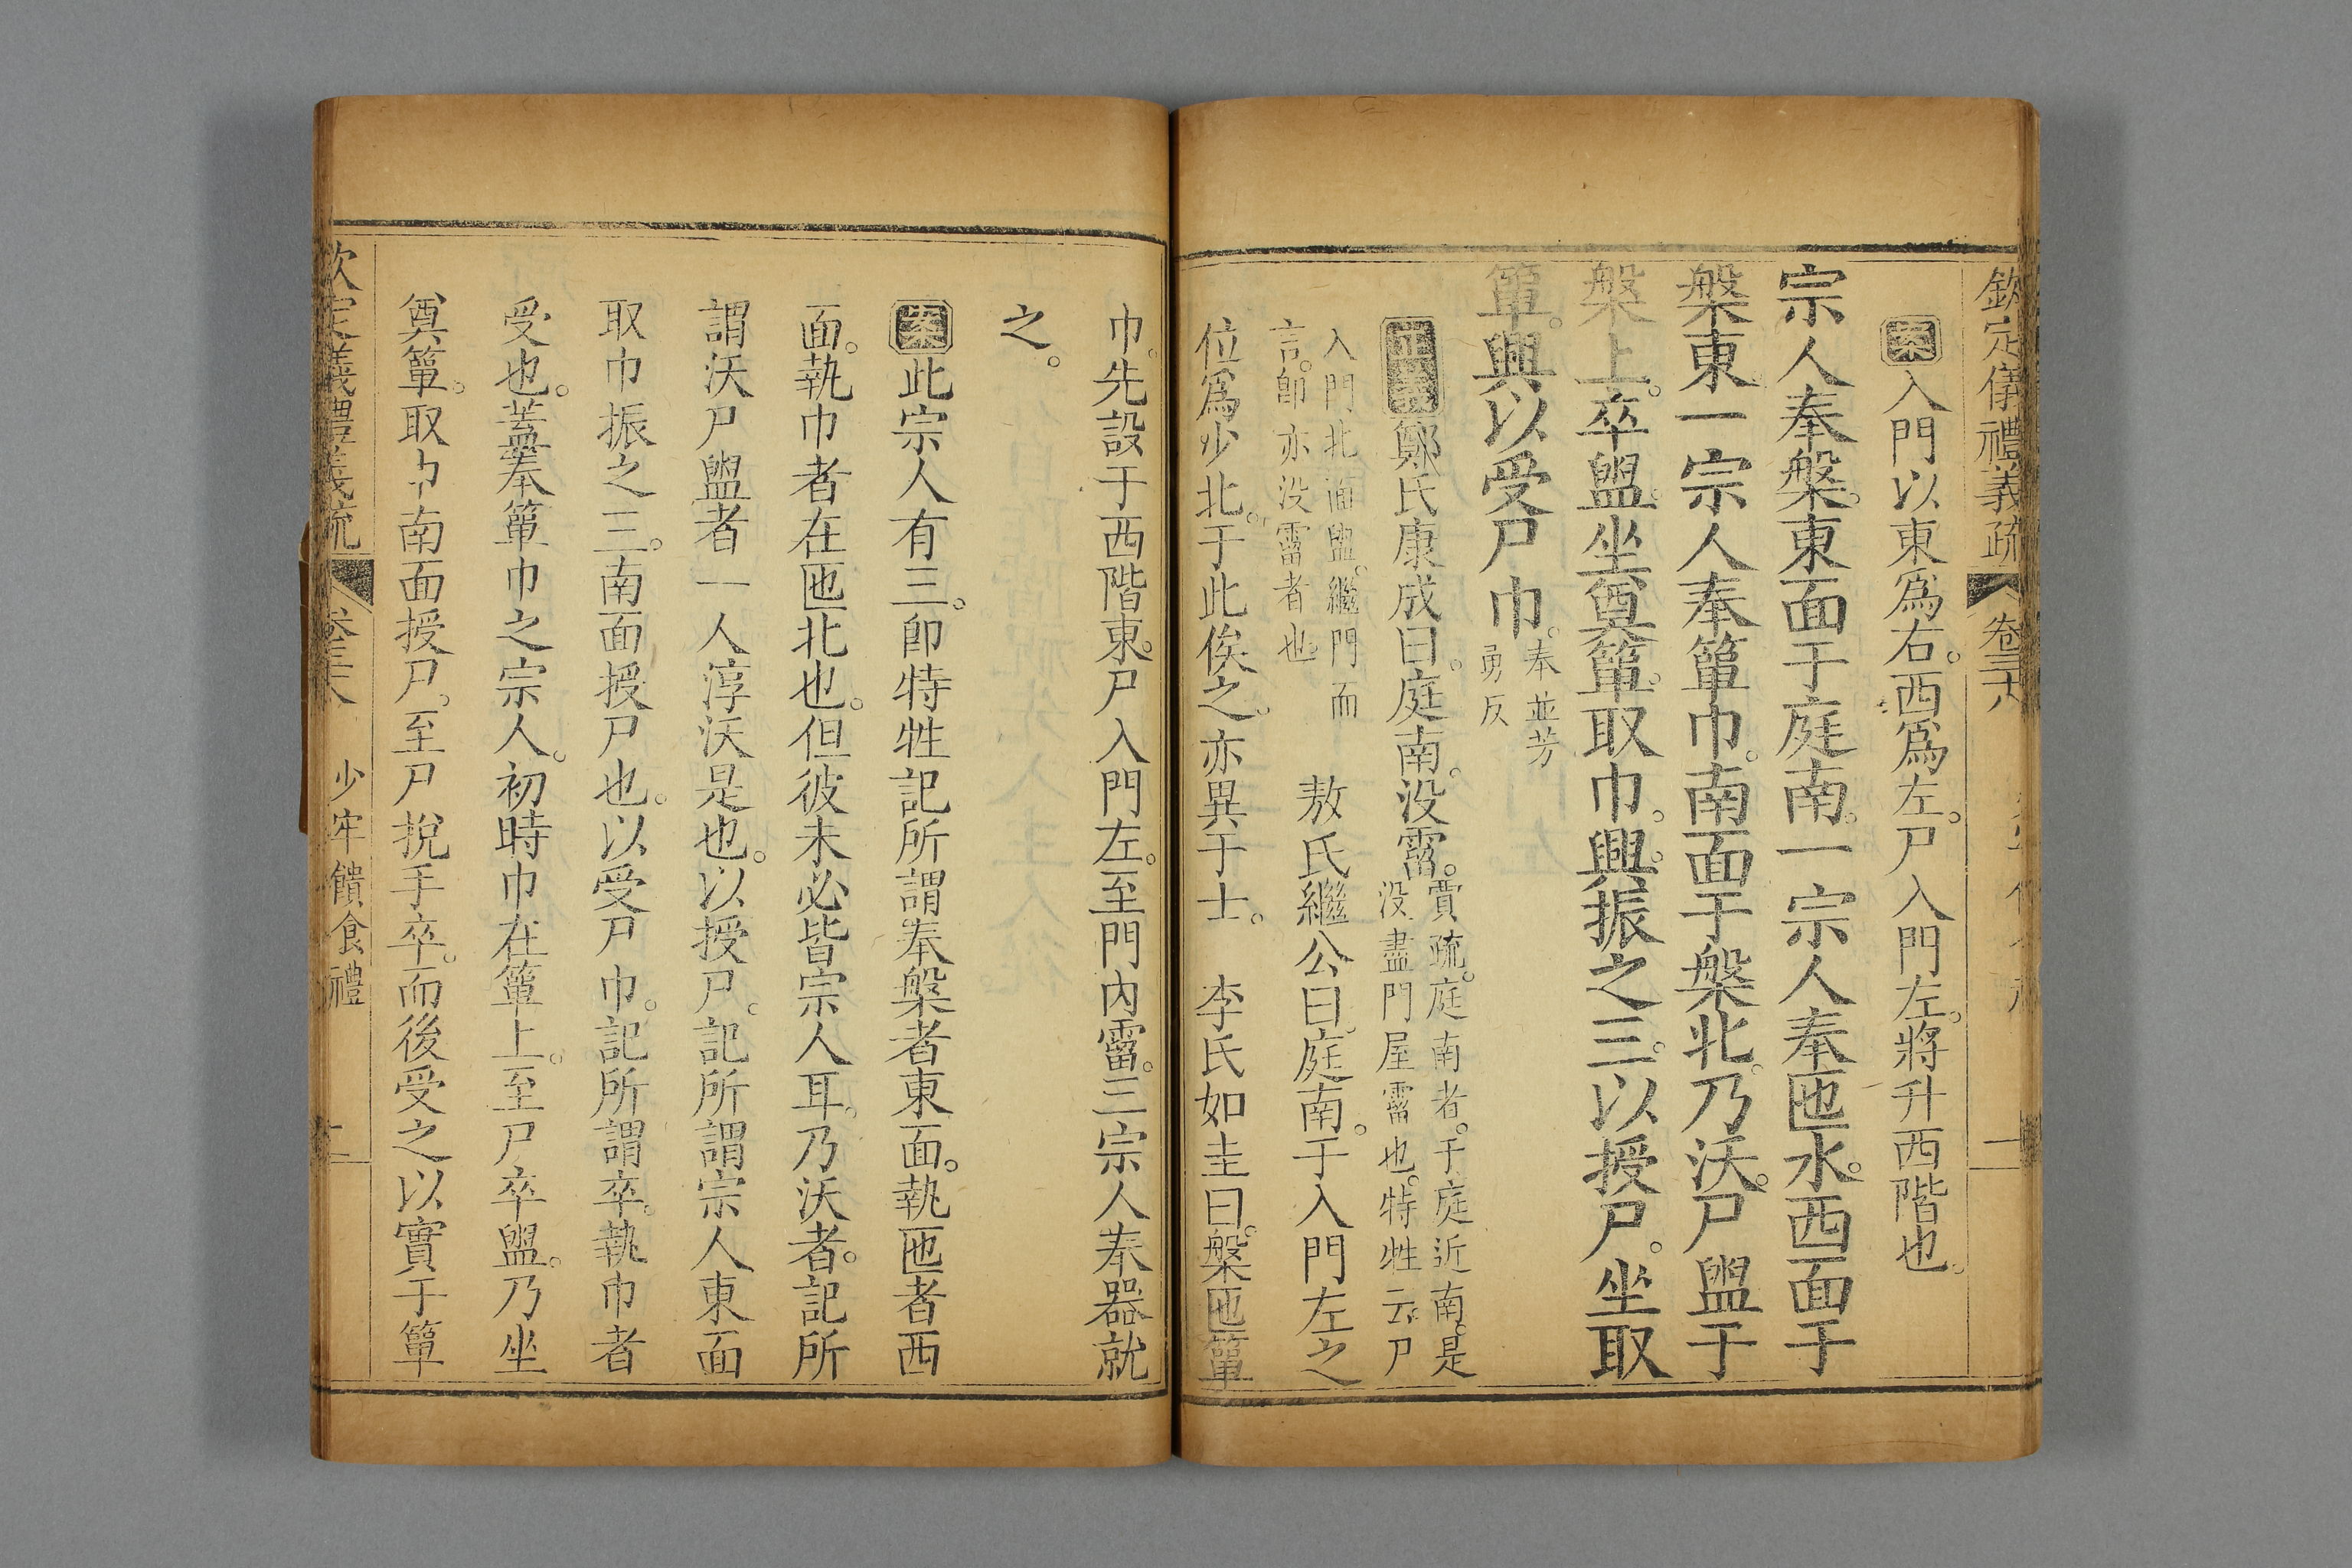 欽定儀禮義疏 卷三十八
案入門以東爲右。西爲左。尸入門左。將升西階也。
宗人奉槃。東面于庭南。一宗人奉匜水。西面于
槃東一宗人奉簞巾。南面于槃北。乃沃。尸盥于
槃上。卒盥。坐奠簞。取巾。興。振之三。以授尸。坐取
簞。興以受尸巾。奉並芳
勇反
正義鄭氏康成曰。庭南。没霤。賈疏。庭南者。于庭近南。是
没盡門屋霤也。特牲云。尸
入門北面盥。繼門而
言。卽亦没霤者也。敖氏繼公曰。庭南。于入門左之
位爲少北。于此俟之。亦異于士。 李氏如圭曰。槃匜簞
巾。先設于西階東。尸入門左。至門內霤。三宗人奉器就
之。
案此宗人有三。卽特牲記所謂奉槃者東面。執匜者西
面。執巾者在匜北也。但彼未必皆宗人耳。乃沃者。記所
謂沃尸盥者一人淳沃是也。以授尸。記所謂宗人東面
取巾振之三。南面授尸也。以受尸巾。記所謂卒。執巾者
受也。蓋奉簞巾之宗人。初時巾在簞上。至尸卒盥。乃坐
奠簞。取巾南面授尸。至尸挩手卒。而後受之以實于簞
欽定儀禮義疏 卷三十八 少牢饋食禮